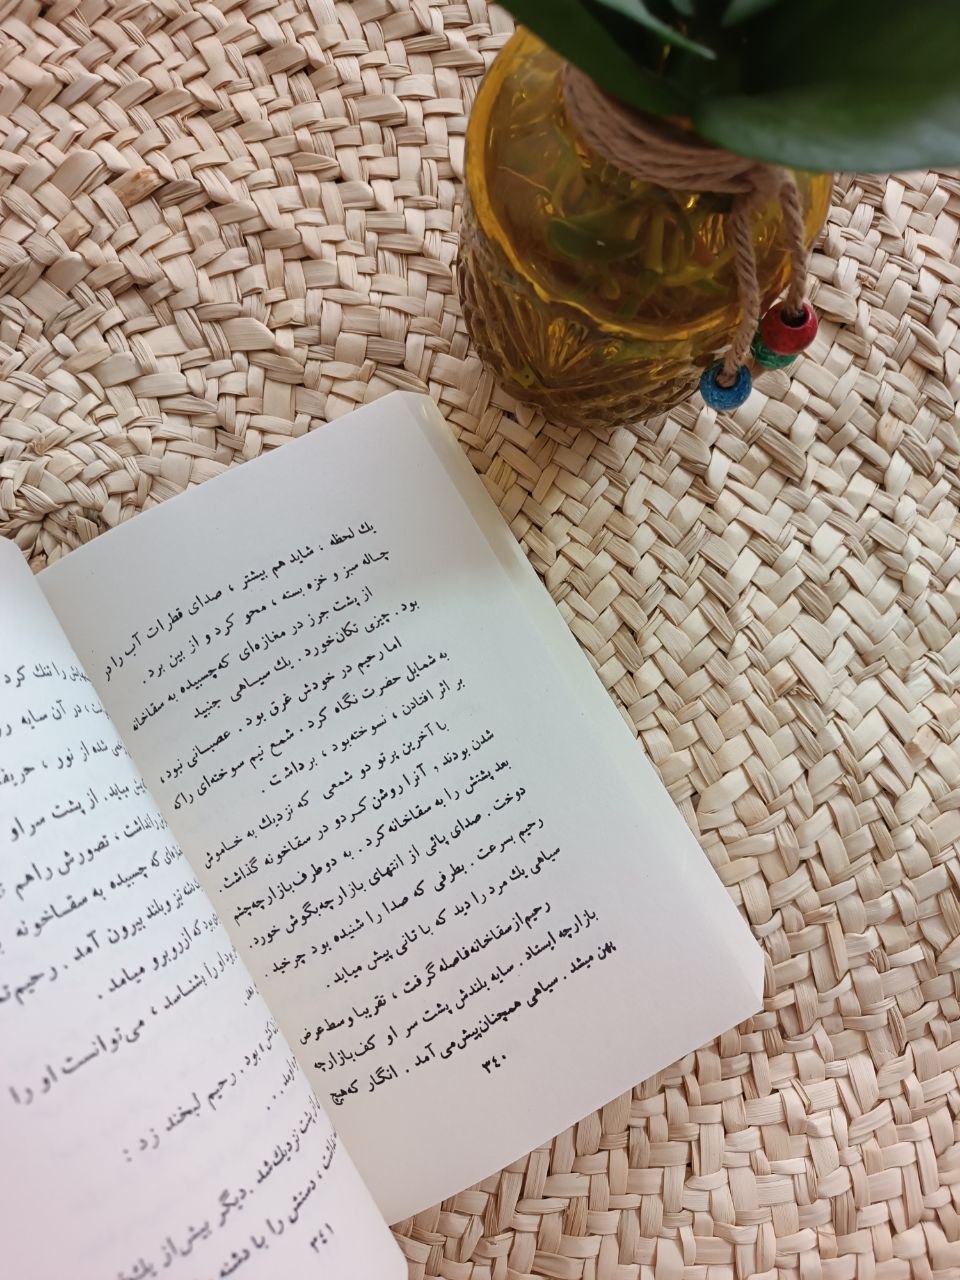 یك لحظه ، شاید هم بیشتر ، صدای قطرات آب را در
چاله سبز و خزه بسته ، محو كرد و از بین برد .
از پشت جرز در مغازه‌ای كه چسبیده به سقاخانه
بود . چیزی تكان خورد . یك سیاهی جنبید
اما رحیم در خودش غرق بود . عصبانی نبود ،
به شمایل حضرت نگاه كرد . شمع نیم سوخته‌ای را كه
بر اثر افتادن ، نسوخته بود ، برداشت .
با آخرین پرتو دو شمعی كه نزدیك به خاموش
شدن بودند , آنرا روشن كرد و در سقاخونه گذاشت .
بعد پشتش را به سقاخانه كرد . به دو طرف بازارچه چشم
دوخت . صدای پائی از انتهای بازارچه بگوش خورد .
رحیم بسرعت . بطرفی كه صدا را شنیده بود چرخید .
سیاهی یك مرد را دید كه با تانی پیش میاید .
رحیم از سقاخانه فاصله گرفت ، تقریبا وسط عرض
بازارچه ایستاد . سایه بلندش پشت سر او كف بازارچه
پهن میشد . سیاهی همچنان پیش می آمد . انگار كه هیچ
۳٤۰
را تنك كرد
در آن سایه
شده از نور ، حریف
میاید . از پشت سر او
را نداشت ، تصورش را هم
كه چسبیده به سقاخونه
نیز و بلند بیرون آمد . رحیم
كه از روبرو میامد .
او را بشناسد ، می‌توانست او را
بود . رحیم لبخند زد :
پشت نزدیك شد . دیگر بیش از یك
دستش را با دشنه
۳٤۱